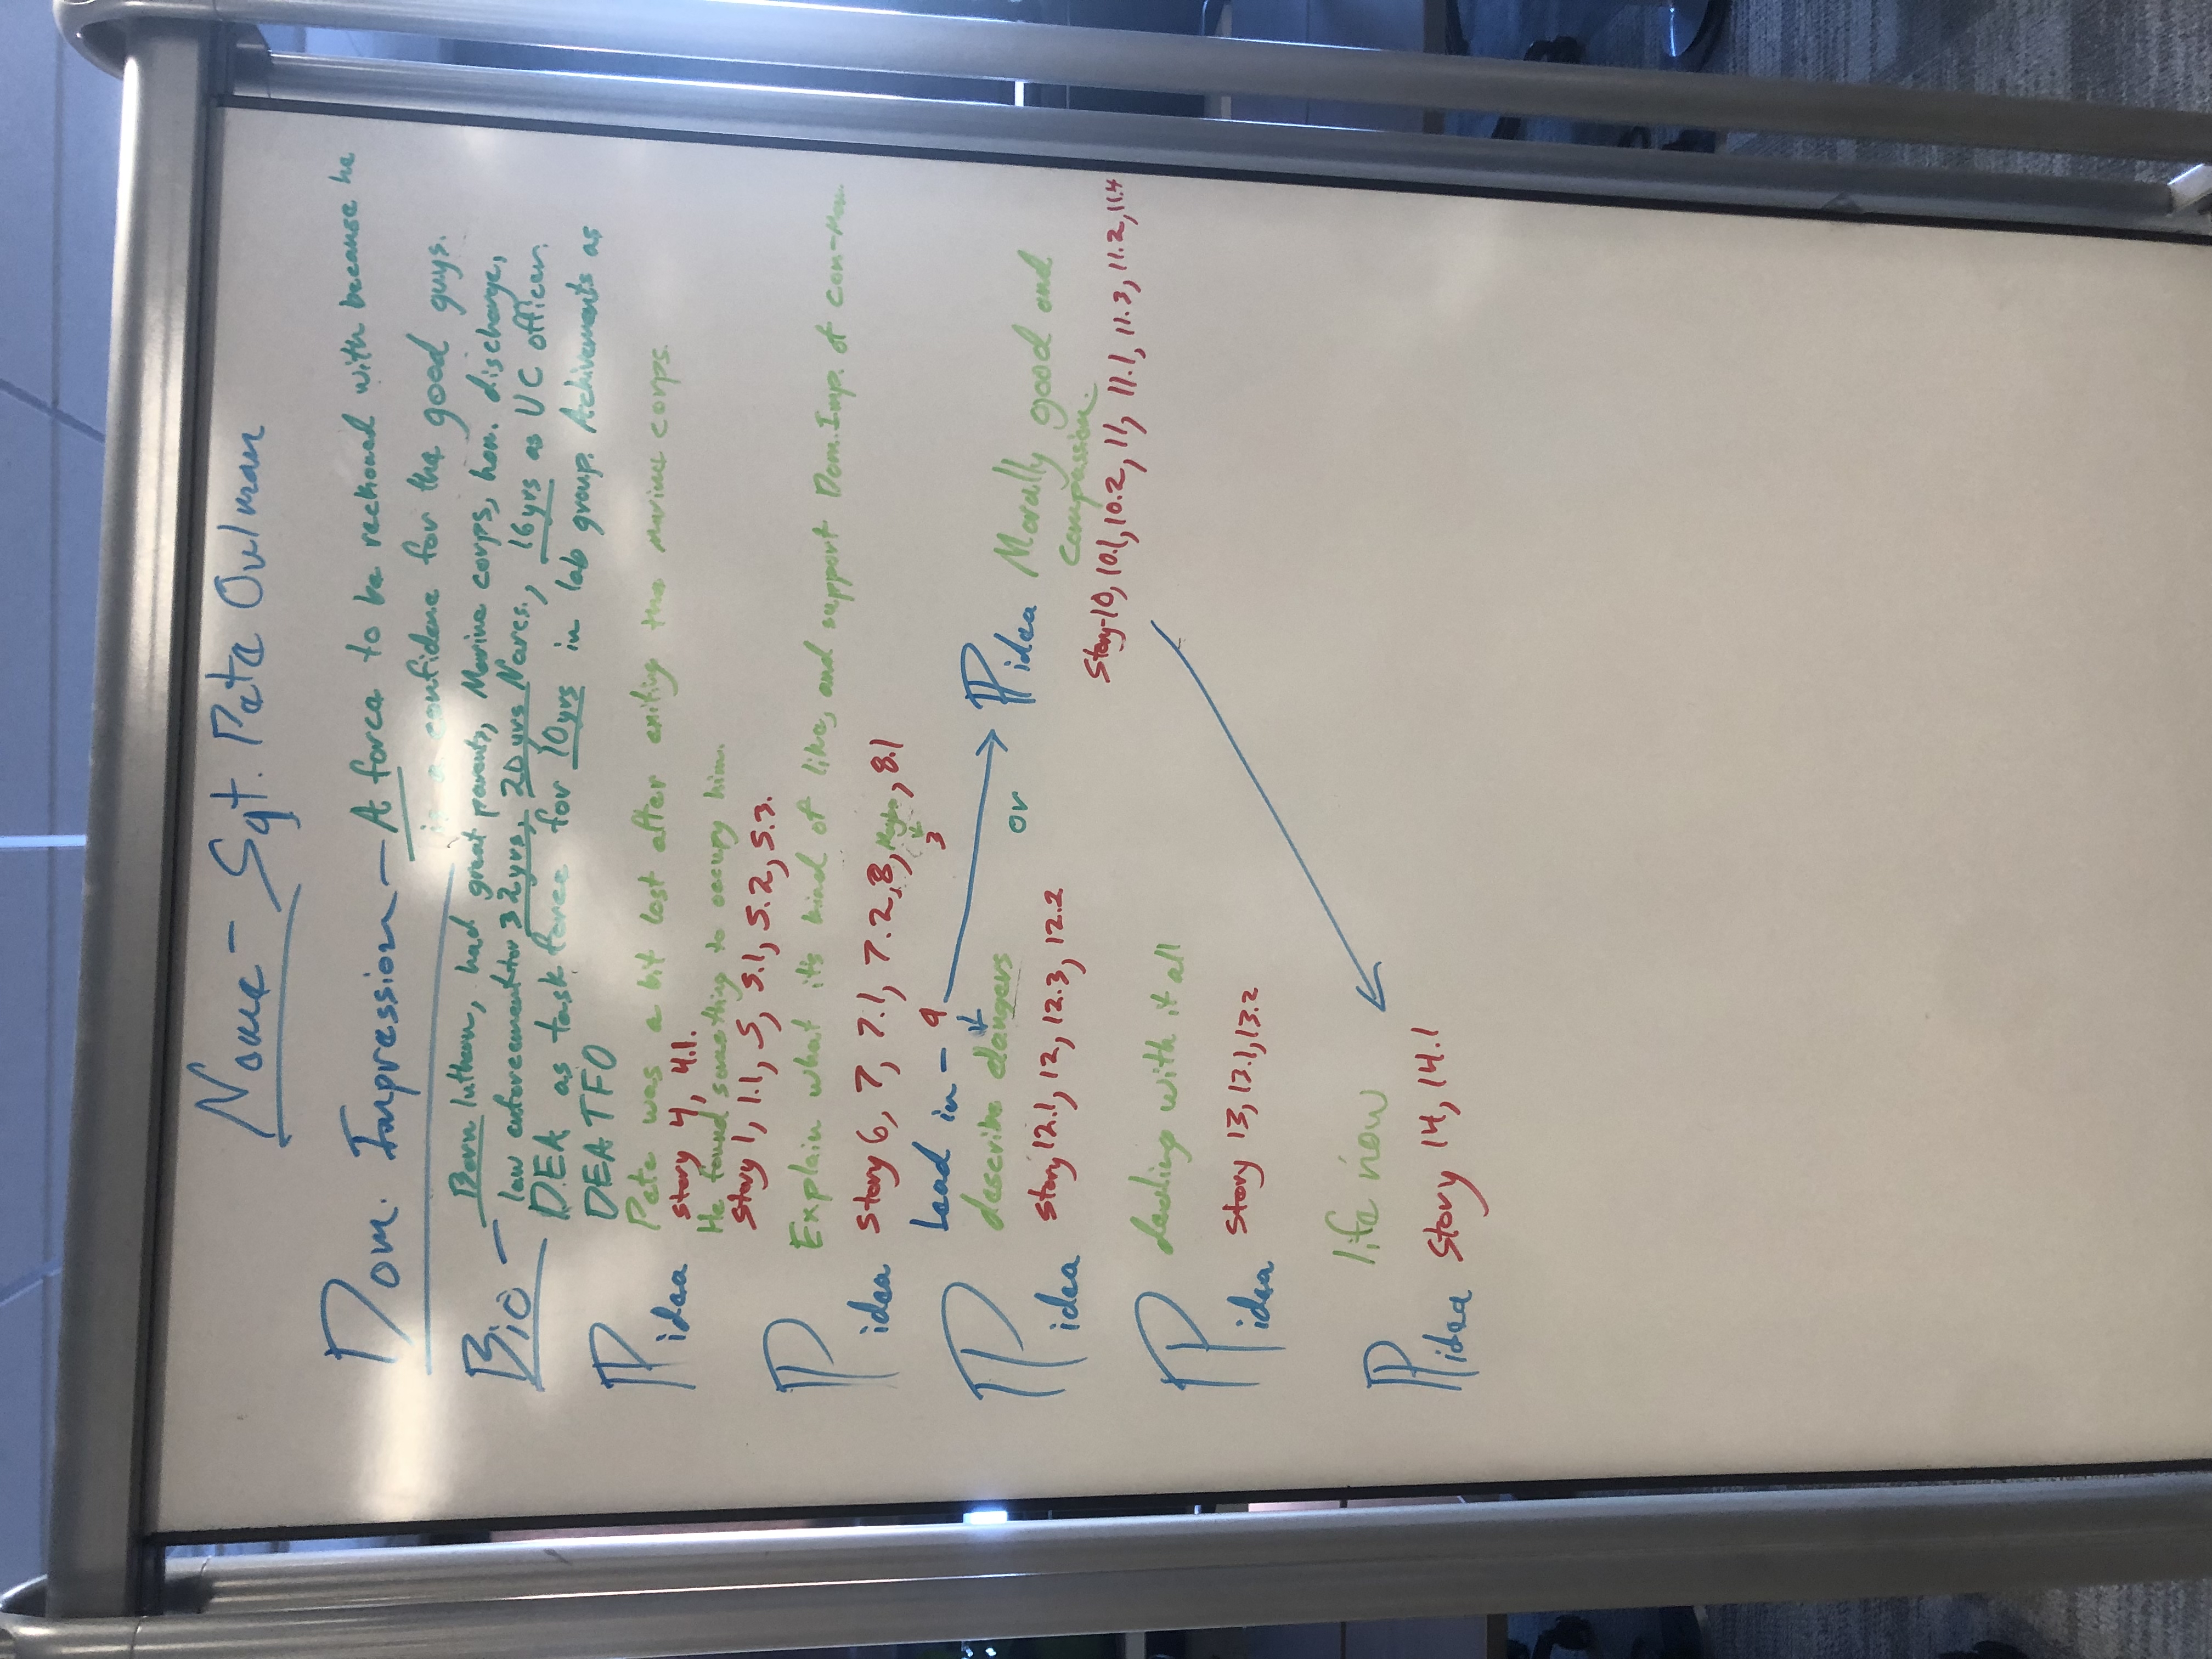 Name - Sgt. Pete Oulman
Dom. Impression - A force to be reckoned with because he
is a confidence for the good guys.
Bio - Born luthern, had great parents, Marine corps, hon. discharge,
law enforcement for 32yrs, 20 yrs Narcs., 16yrs as UC officer.
DEA as task force for 10yrs in lab group. Achivements as
DEA TFO
P idea Pete was a bit lost after exiting the marine corps.
story 4, 4.1.
He found something to occupy him.
Story 1, 1.1, 5, 5.1, 5.2, 5.3.
P idea Explain what it's kind of like, and support Dom. Imp. of con-man.
story 6, 7, 7.1, 7.2, 8, Maybe, 8.1
3
Lead in - 9
P idea describe dangers
story 12.1, 12, 12.3, 12.2
or
P idea Morally good and
compassion.
Story-10, 10.1, 10.2, 11, 11.1, 11.3, 11.2, 11.4
P idea dealing with it all
story 13, 13.1, 13.2
P idea life now
story 14, 14.1